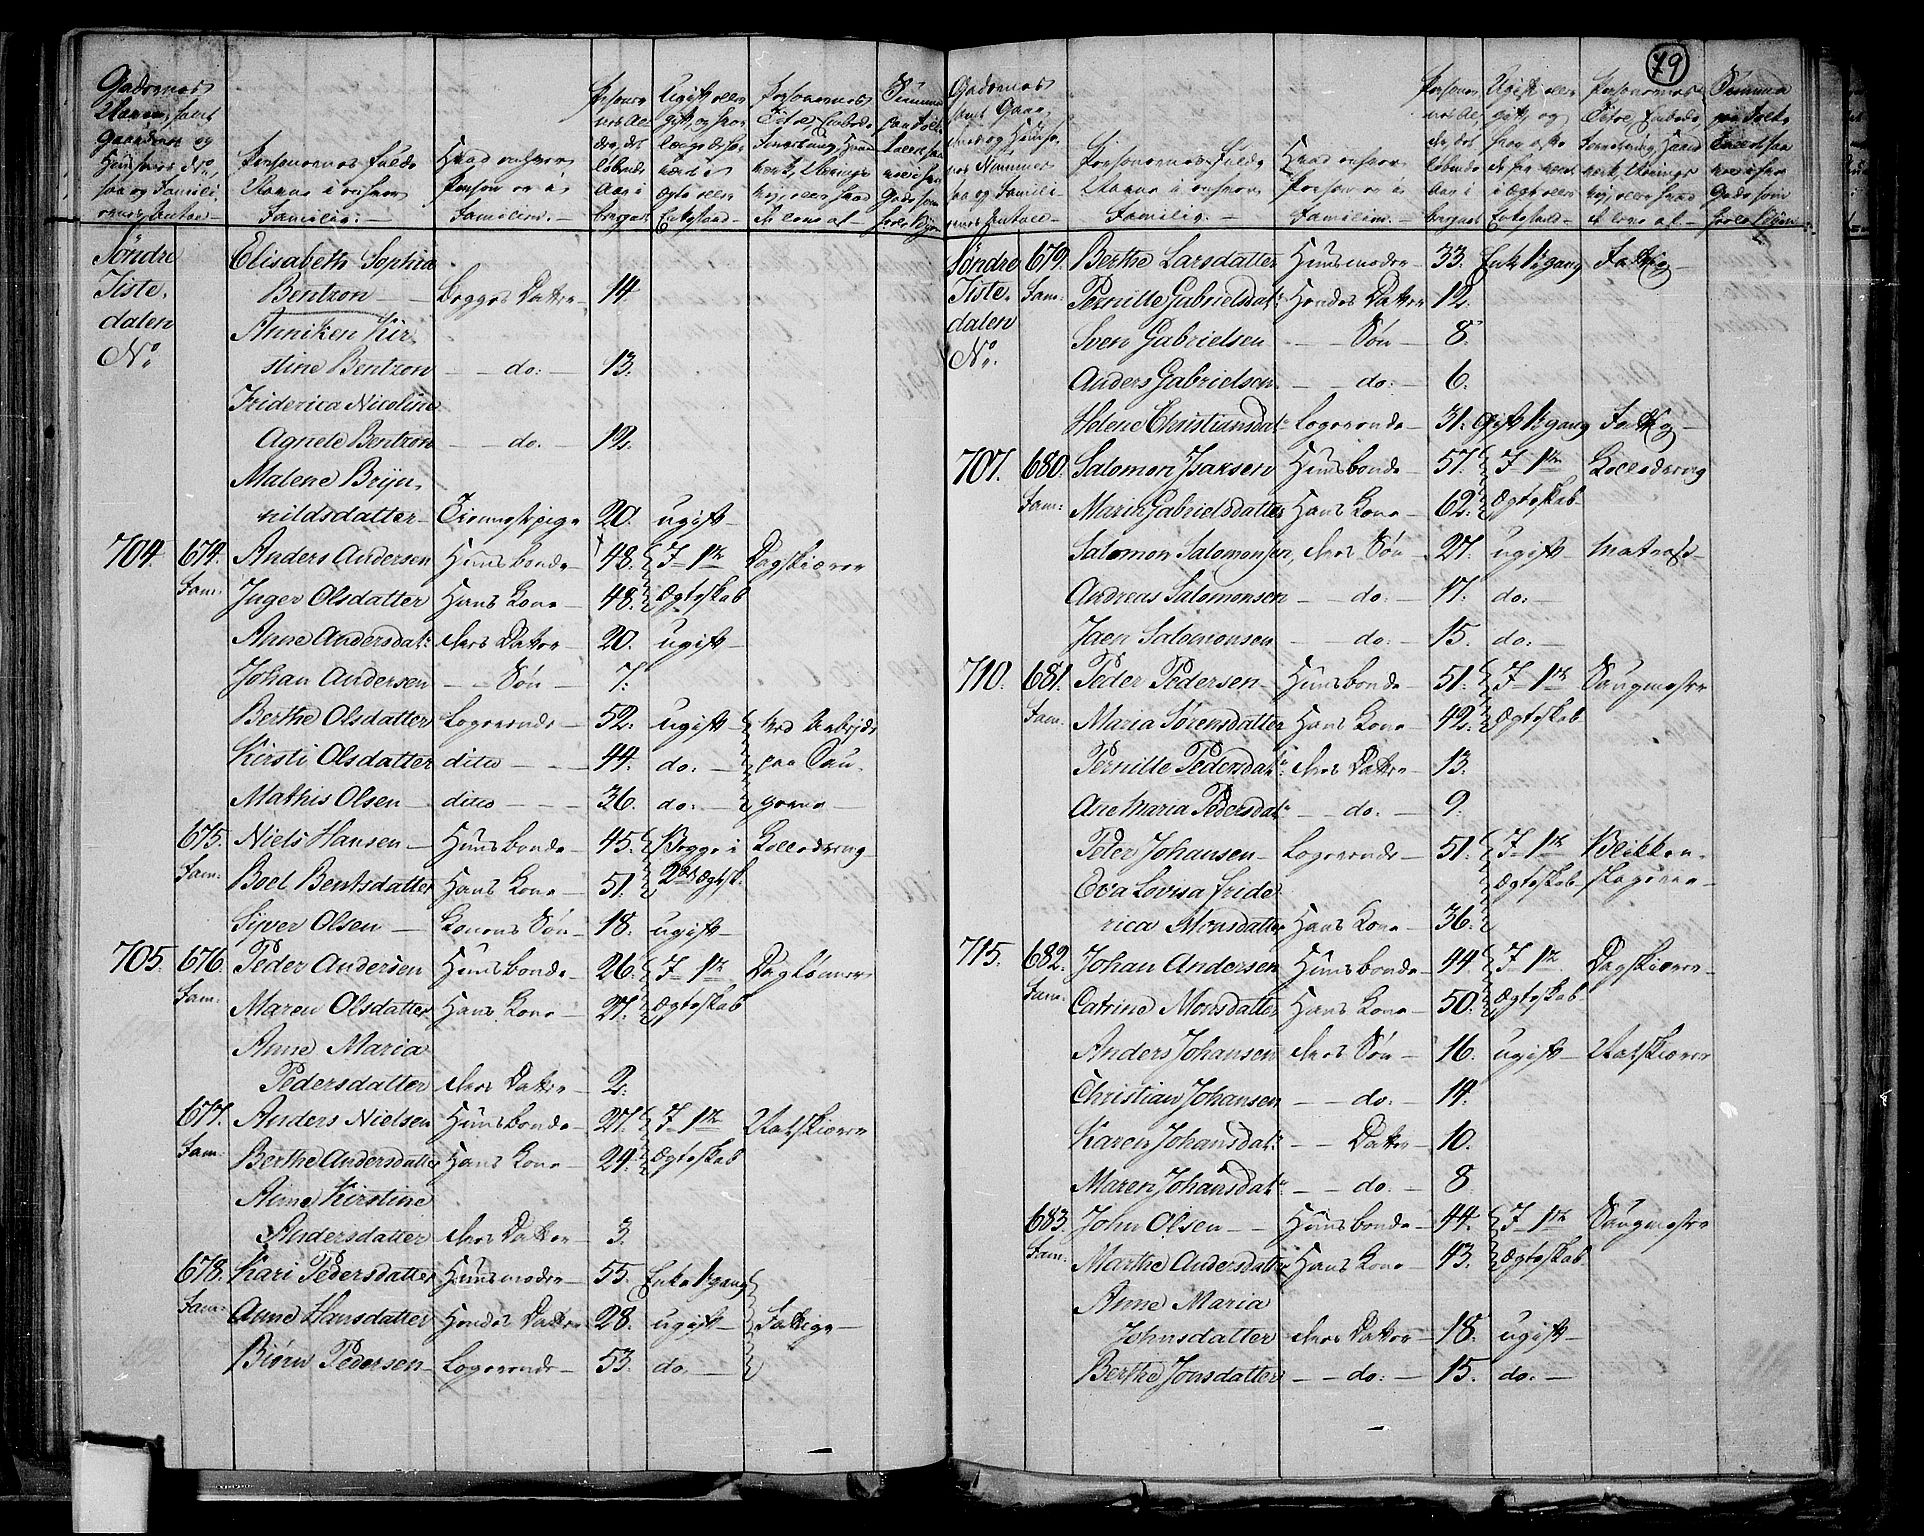 79
Gadernes
Navne, samt
Gaardenes og
Husenes No,
saa og Famili
ernes Antal
Personernes fulde
Navne i enhver
Familie.
Hvad enhver
Person er i
Familien.
Personer
nes Al
der, det
løbende
Aar i
beregnet
Ugift eller
gift, og hvor
længe de har
været i
Ægte eller
Enkestand
Personernes
Titel, Embede
Forretning, Haand
verk, Nærings
vej, eller hvad
de leve af
Søndre
Tiste,
dalen
No
Elisabeth Sophia
Bentzon — Begges Datter 14.
Anniken Kir
stine Bentzon — do: — 13.
Friderica Nicoline
Agnete Bentzon — do. 12.
Malene Bryn,
hildsdatter — Tienestepige 20. ugift
704. 674. Anders Andersen Huusbonde 48. I 1te Dagskierer
Fam: Inger Olsdatter Hans Kone 48. Ægteskab
Anne Andersdatr: deres Datter 20. ugift
Johan Andersen — Søn — 7.
Berthe Olsdatter Logerende 52. ugift ved Arbejde
Kirsti Olsdatter dito — 44. do: — paa Sau,
Mathis Olsen dito — 36. do: — gerne
675. Niels Hansen Huusbonde 45. Begge i Kulledreng
Fam: Boel Bentsdatter Hans Kone 51. 2det Ægtesk:
Syver Olsen — Konens Søn 18. ugift
705. 676. Peder Andersen Huusbonde 26. I 1te Daglønner
Fam: Maren Olsdatter Hans Kone 27. Ægteskab
Anne Maria
Pedersdatter deres Datter 2.
677. Anders Nielsen Huusbonde 27. I 1te Natskierer
Fam: Berthe Andersdatter Hans Kone 24. Ægteskab
Anne Kirstine
Andersdatter deres Datter 3.
678. Kari Pedersdatter Huusmoder 55. Enke 1 gang
Fam: Anne Hansdatter Hendes Datter 28. ugift Fattige
Biørn Pedersen Logerende 53. do. —
Personernes fulde
Navne i enhver
Familie.
Hvad enhver
Person er i
Familien.
Søndre 679. Berthe Larsdatter Huusmoder 33. Enke 1 gang Fattig
Tiste, Fam: Pernille Gabrielsdatr: Hendes Datter 12.
dalen Sven Gabrielsen — Søn — 8.
No. Anders Gabrielsen — do: — 6.
Helene Christiansdatr: Logerende 31. Gift 1 gang Fattig
707. 680. Salomon Isaksen Huusbonde 57. I 1te Kulledreng
Fam: Maria Gabrielsdatter Hans Kone 62. Ægteskab
Salomon Salomonsen, deres Søn 27. ugift Matros
Andreas Salomonsen — do: — 17. do: —
Jaen Salomonsen — do: — 15. do: —
710. 681. Peder Pedersen Huusbonde 51. I 1te Saugmester
Fam: Maria Sørensdatter Hans Kone 42. Ægteskab
Pernille Pedersdatr: deres Datter 13.
Ane Maria Pedersdatr: — do: — 9.
Peter Johansen Logerende 51. I 1te Blikken,
Eva Lovisa Fride Ægteskab slagere
rica Monsdatter Hans Kone 36.
715. 682. Johan Andersen Huusbonde 44. I 1te Dagskierer
Fam: Catrine Monsdatter Hans Kone 50. Ægteskab
Anders Johansen deres Søn 16. ugift Natskierer
Christian Johansen — do: — 14.
Karen Johansdatr: — Datter 10.
Maren Johansdatr: — do: — 8.
683. John Olsen — Huusbonde 44. I 1te Saugmester
Fam: Marthe Andersdatter Hans Kone 43. Ægteskab
Anne Maria
Johnsdatter deres Datter 18. ugift
Berthe Jonsdatter — do: — 15. do: —